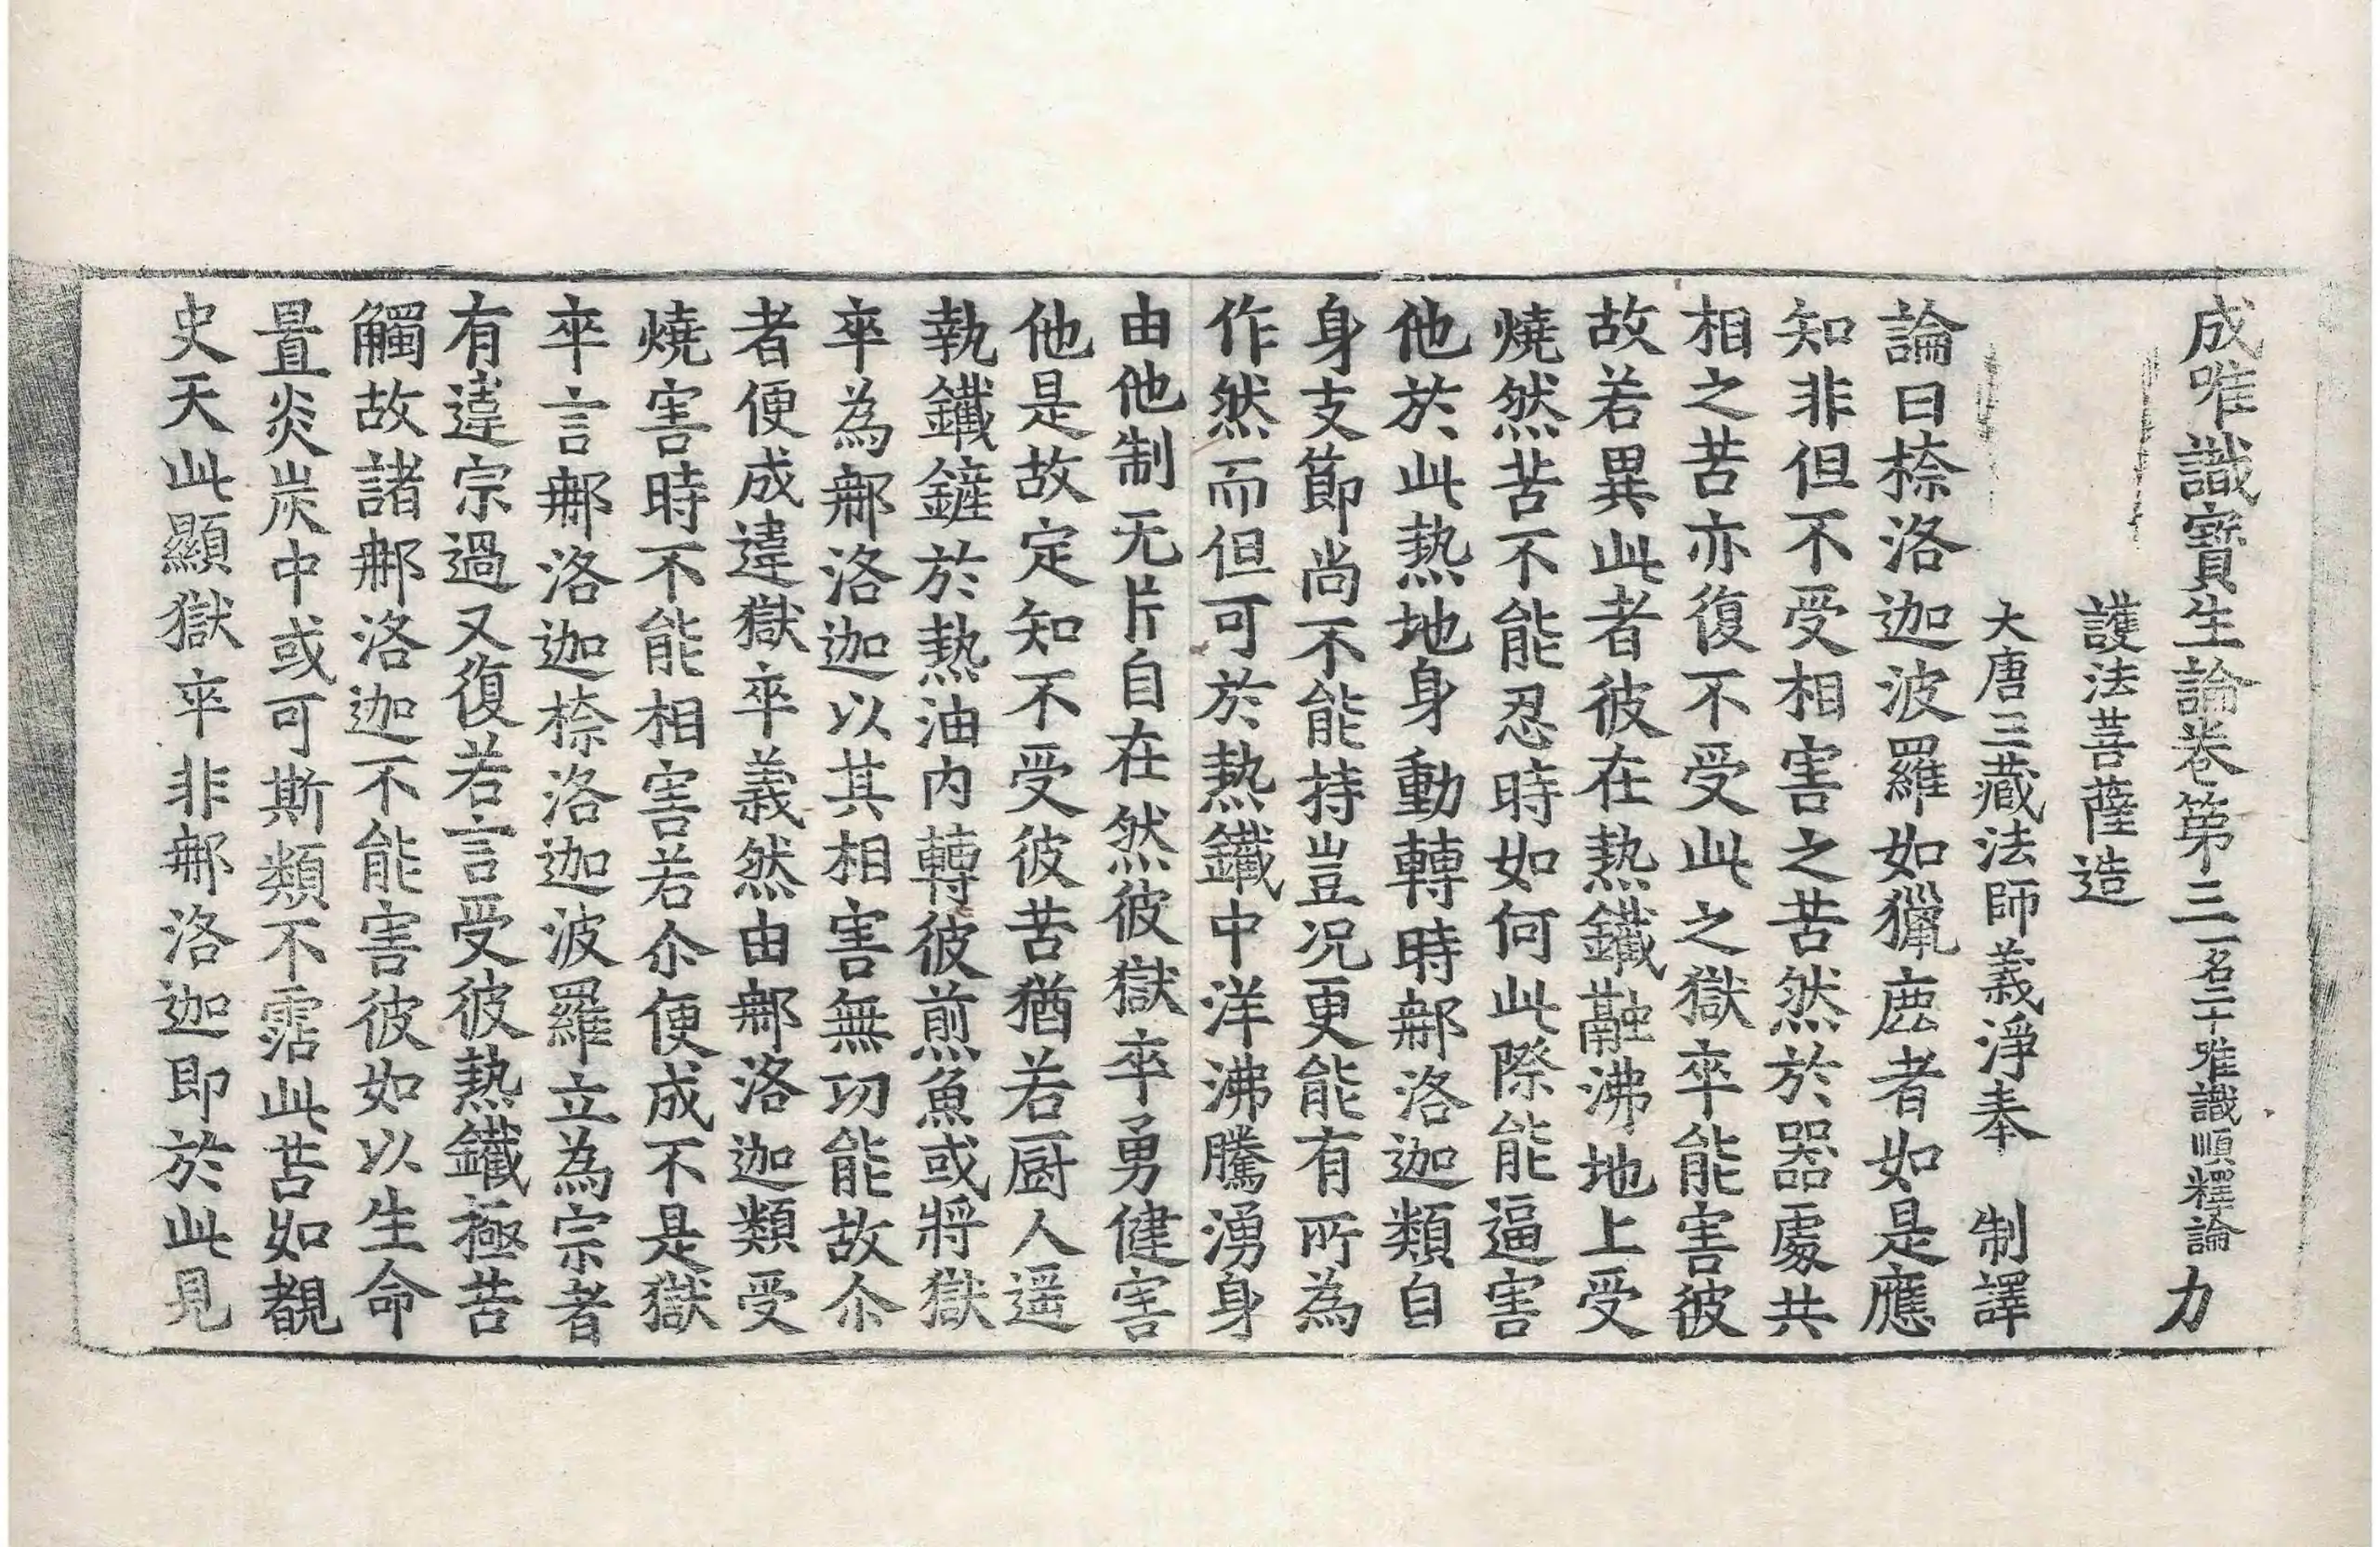 成唯識寶生論卷第三一名二十唯識順釋論 力
護法菩薩造
大唐三藏法師義淨奉 制譯
論曰捺洛迦波羅如獵鹿者如是應
知非但不受相害之苦然於器處共
相之苦亦復不受此之獄卒能害彼
故若異此者彼在熱鐵融沸地上受
燒然苦不能忍時如何此際能逼害
他於此熱地身動轉時郍洛迦類自
身支節尚不能持豈況更能有所為
作然而但可於熱鐵中洋沸騰湧身
由他制无片自在然彼獄卒勇健害
他是故定知不受彼苦猶若厨人遥
執鐵鏟於熱油內轉彼煎魚或將獄
卒為郍洛迦以其相害無功能故尒
者便成違獄卒義然由郍洛迦類受
燒害時不能相害若尒便成不是獄
卒言郍洛迦捺洛迦波羅立為宗者
有違宗過又復若言受彼熱鐵極苦
觸故諸郍洛迦不能害彼如以生命
置炎炭中或可斯類不霑此苦如覩
史天此顯獄卒非郍洛迦即於此見